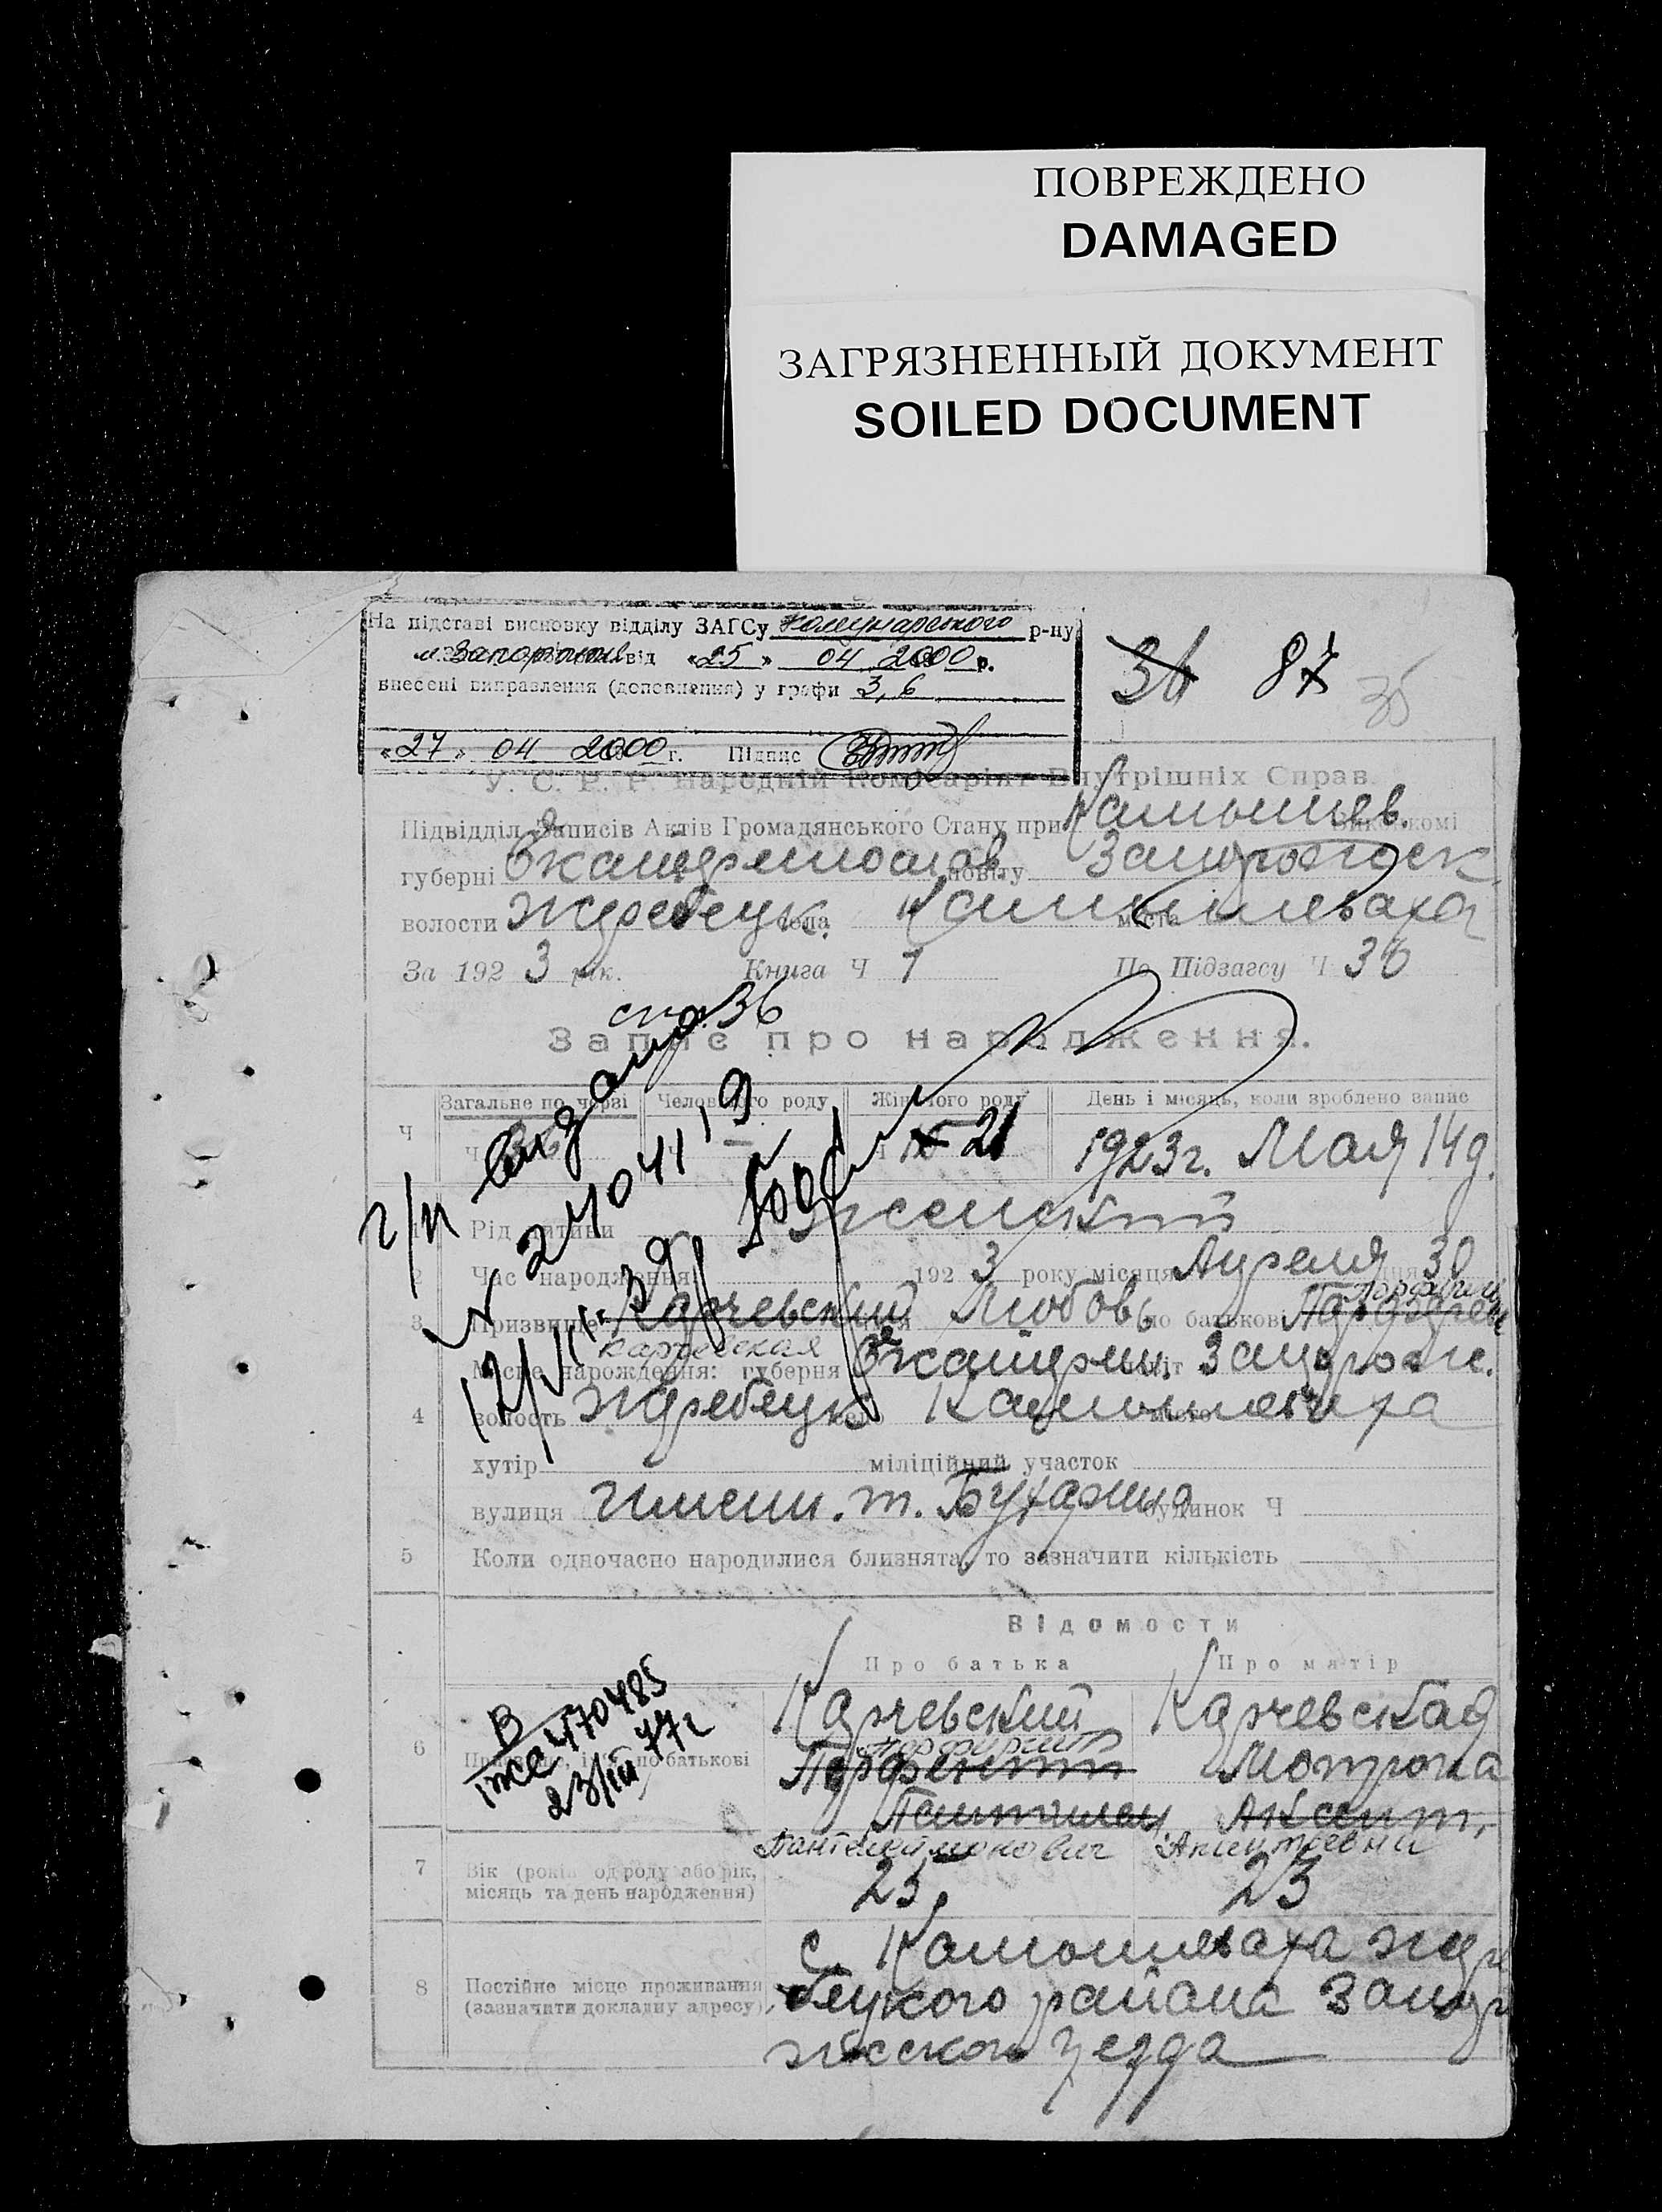 ПОВРЕЖДЕНО
DAMAGED
ЗАГРЯЗНЕННЫЙ ДОКУМЕНТ
SOILED DOCUMENT
На підставі висновку відділу ЗАГСу Комунарського р-ну
м. Запоріжжя від «25» 04 2000 р.
внесені виправлення (доповнення) у графи 3, 6
«27» 04 2000 г. Підпис
36 87 35
У. С. Р. Р. Народній Комісаріят Внутрішніх Справ.
Підвідділ Записів Актів Громадянського Стану при Камышев. Виконкомі
губерні Екатеринослав. повіту Запорожск.
волости Жеребецк. села Камышеваха міста
За 192 3 рік. Книга Ч 1 По Підзагсу Ч 36
стр. 36
Запис про народження.
Загальне по черзі Человічого роду Жіночого роду День і місяць, коли зроблено запис
Ч Ч 36 — 21 1923г. Мая 14 д.
1 Рід дитини Женский
2 Час народження: 192 3 року місяця Апреля дня 30
Порфирьевна
3 Призвище Карчевский Любовь по батькові
Карчевская
Місце нарождення: губерня Екатерин. повіт Запорож.
4 волость Жеребецк село Камышеваха місто
хутір міліційний участок
вулиця Имени. т. Бухарина будинок Ч
5 Коли одночасно народилися близнята, то зазначити кількість
г/п выдано
12/VII-39г
Відомости
Про батька Про матір
Карчевский Карчевская
6 Призвище, ім'я, по батькові Порфирий Мотрона
Парфентий
Пантилем Акент.
Пантелеймонович Акентьевна
7 Вік (років од роду або рік, місяць та день народження) 25, 23
В
470485
23/III 77г
8 Постійне місце проживання (зазначити докладну адресу) с. Камышеваха Жере
бецкого района Запоро
жсского уезда